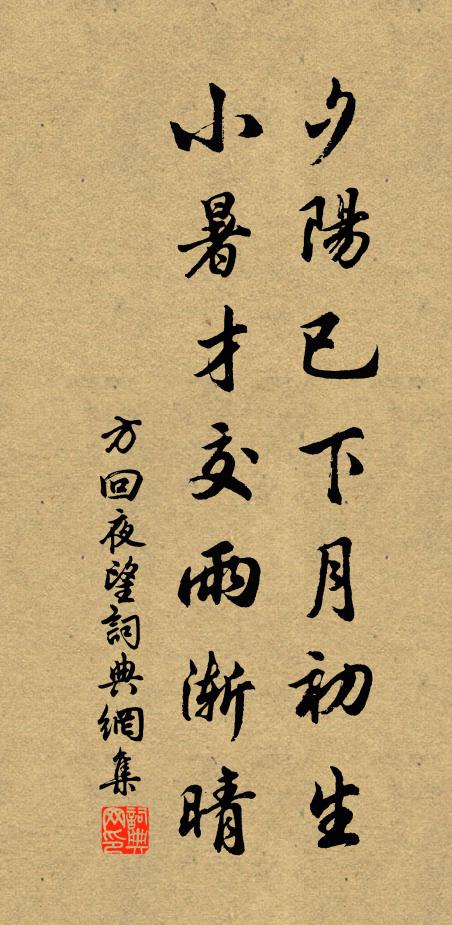 夕陽已下月初生
小暑才交雨漸晴
方回夜望詞典網集
詞典網印